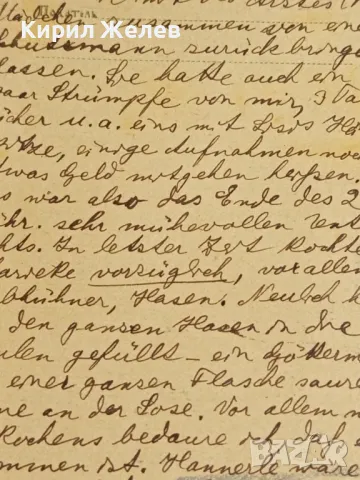 Кирил Желев
zusammen von eine
schussmann zurück bringe
lassen. Sie hatte auch ein
paar Strümpfe von mir, 3 Va
ücher u.a. eins mit Losis Ha
itze, einige Aufnahmen noch
twas Geld mitgehen heißen.
s war also das Ende des 2
ühr. sehr mühevollen
chts. In letzter Zeit kochte
vorzüglich, vor allem
bhühner, Hasen. Neulich h
den ganzen Hasen in die
ulen gefüllt – ein Götterm
einer ganzen Flasche saure
ne an der Sose. Vor allem n
Kochens bedaure ich daß e
ommen ist. Hannerle ware
bazar